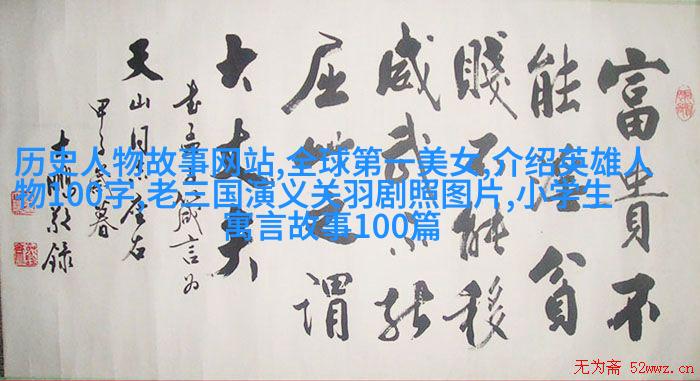 富貴不
能淫貧
賤不能移
威武不能
屈此之謂
大丈夫
孟子箴言为
天山同志座右
甲子岁暮
录
历史人物故事网站,全球第一美女,介绍英雄人
物100字,老三国演义关羽剧照图片,小学生
寓言故事100篇
无为斋 52wwz.cn